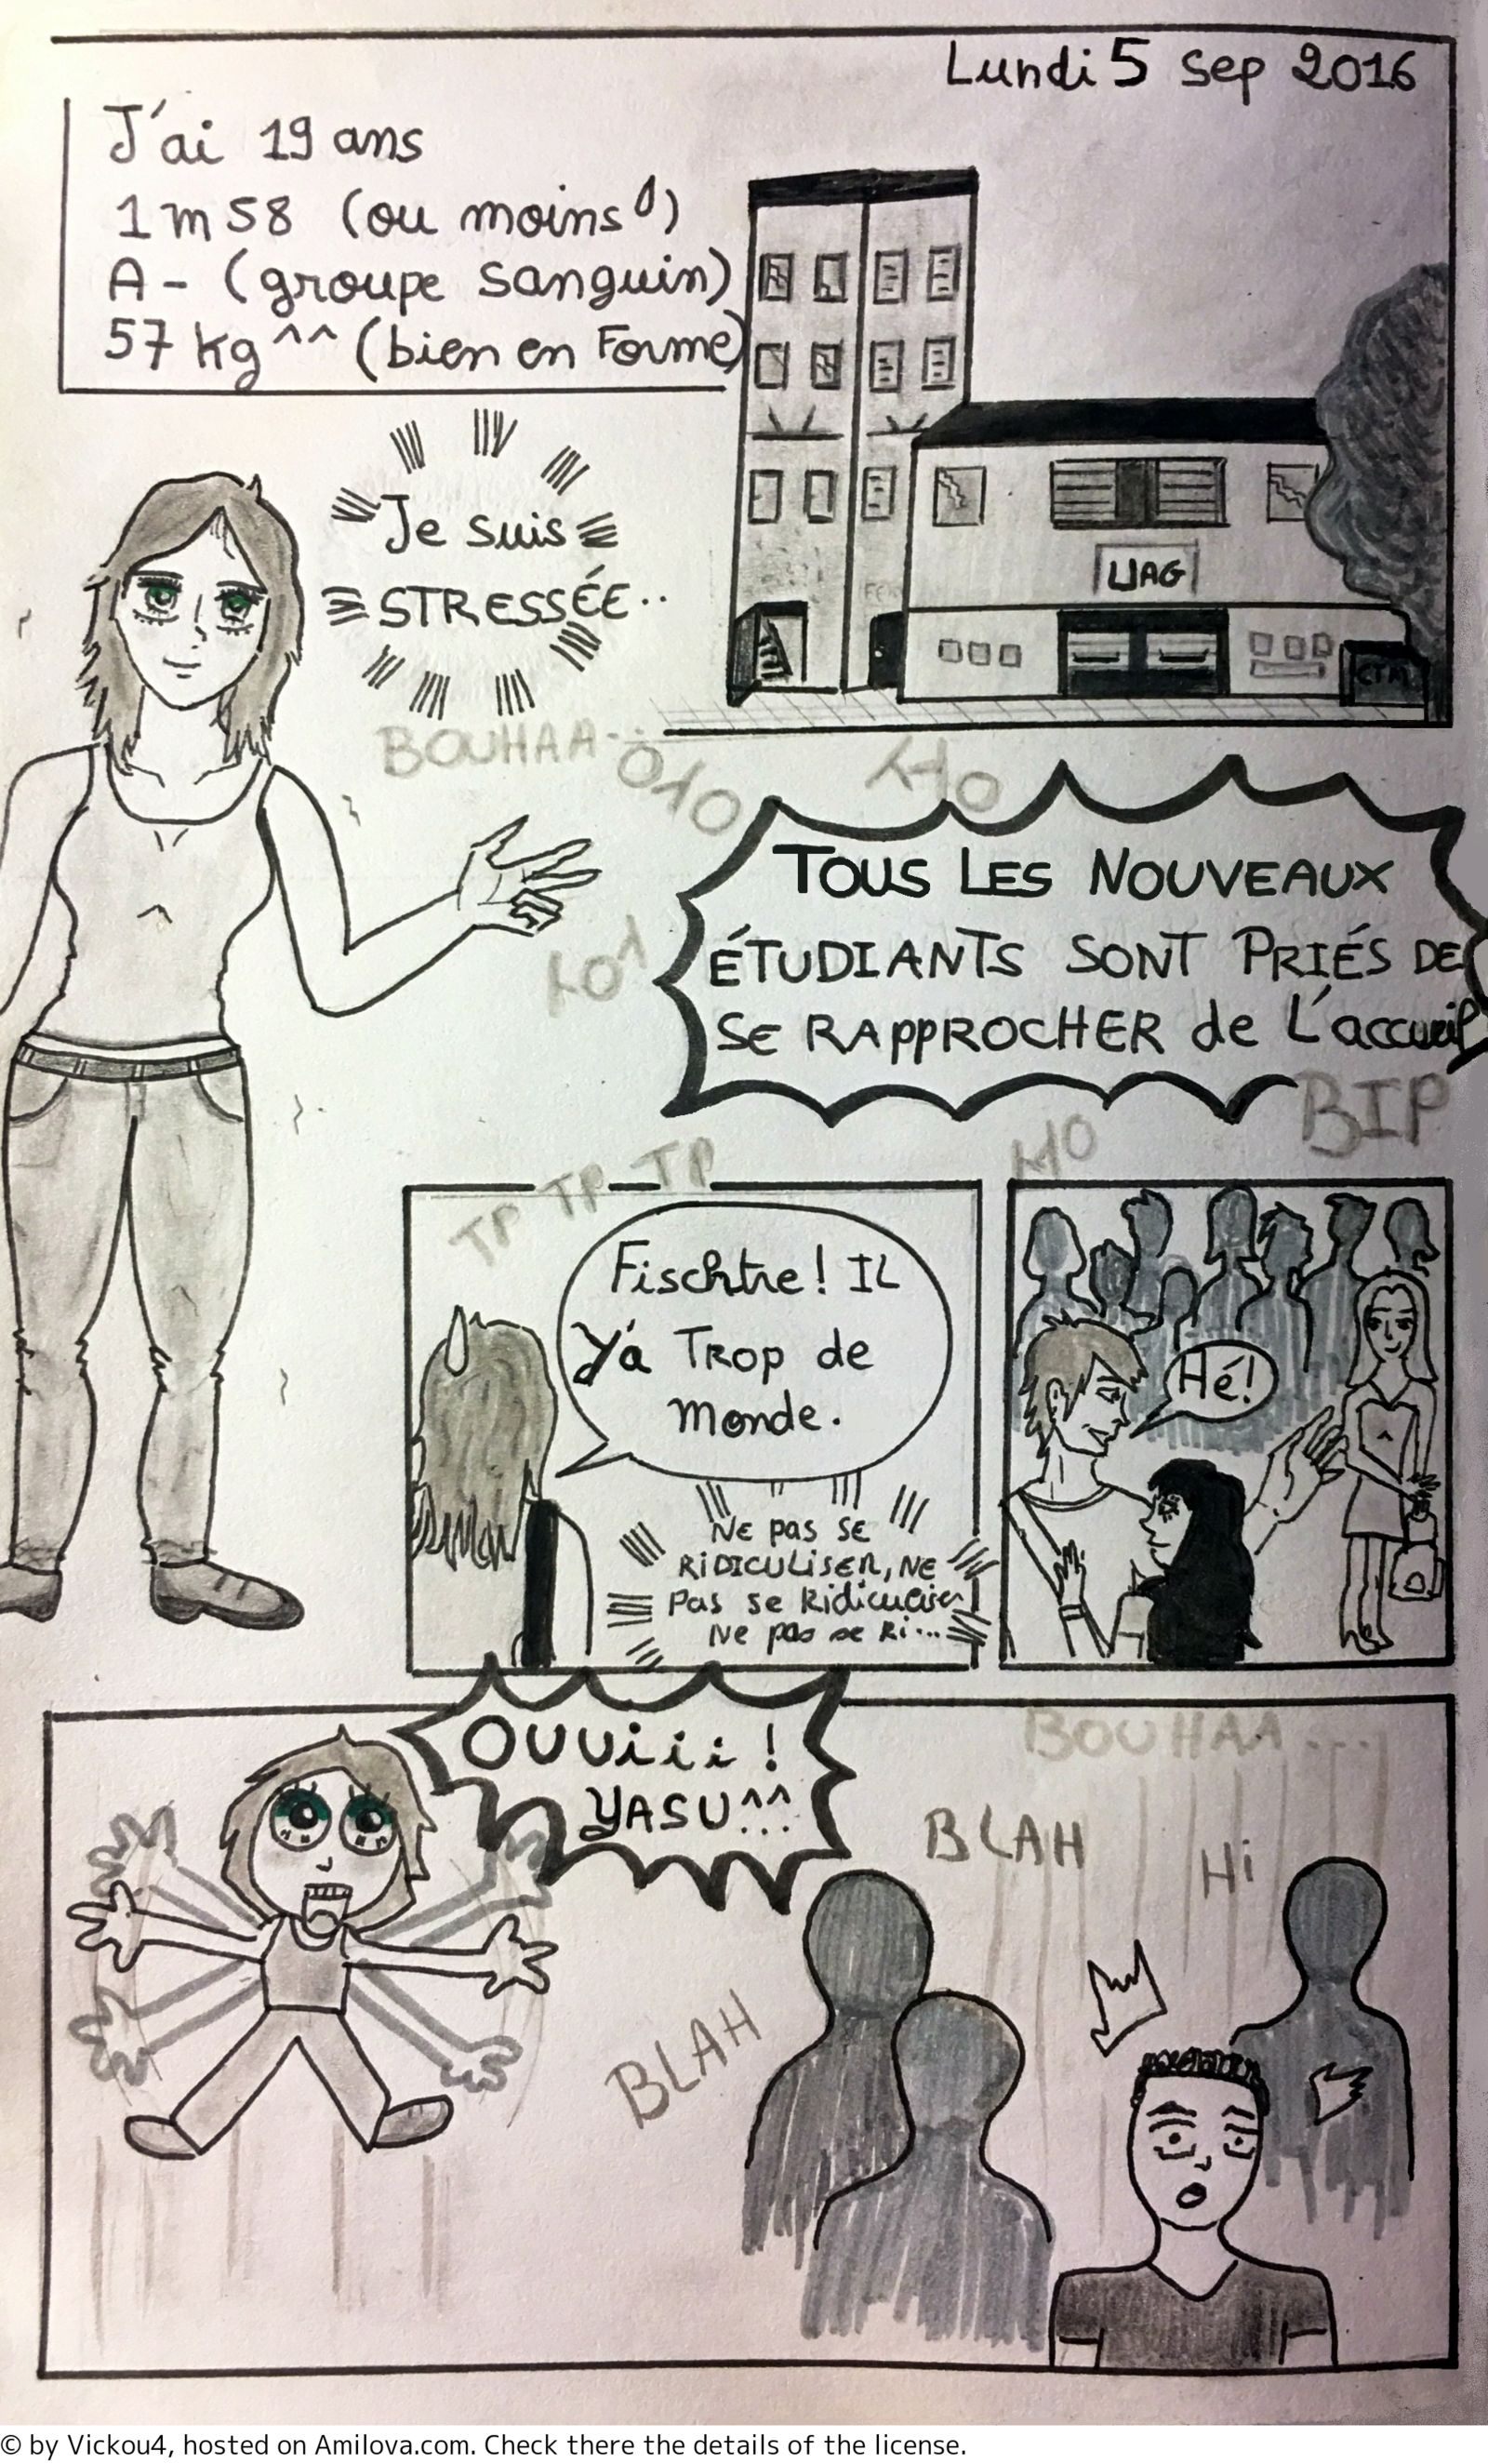 Lundi 5 Sep 2016
J'ai 19 ans
1m58 (ou moins)
A- (groupe Sanguin)
57 kg ^^ (bien en Forme)
Je suis
STRESSÉE..
UAG
CTM
BOUHAA...
OYO
YO
TOUS LES NOUVEAUX
ÉTUDIANTS SONT PRIÉS DE
SE RAPPROCHER de L'accueil
YOY
BIP
YO
TP TP TP
Fischtre! IL
Y'a TROP de
monde.
Ne pas SE
RiDiCULiSER, NE
Pas se Ridiculiser
Ne pas se Ri...
Hé!
OUUiii!
YASU^^
BOUHAA...
BLAH
Hi
BLAH
© by Vickou4, hosted on Amilova.com. Check there the details of the license.